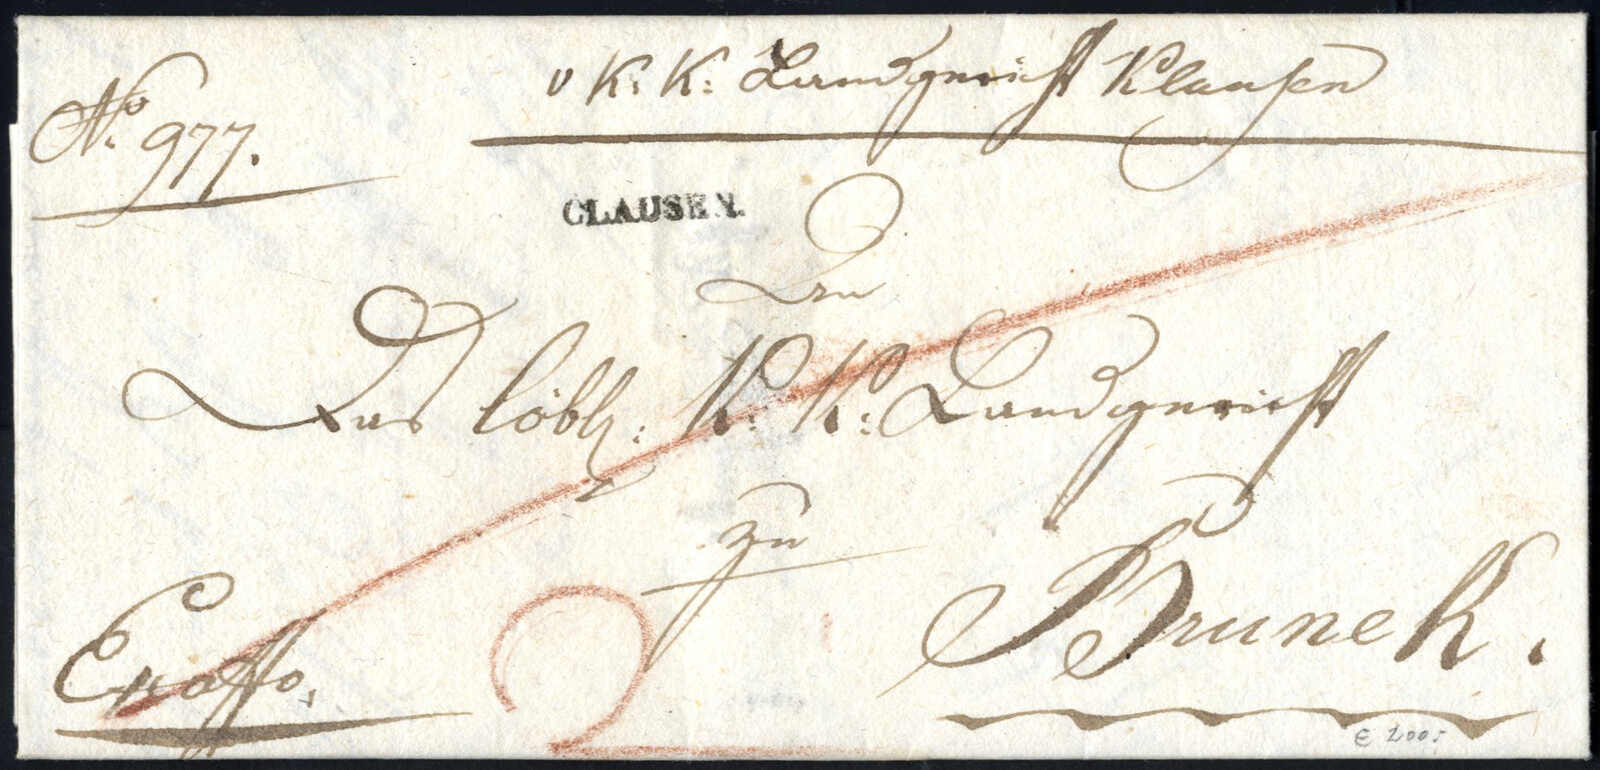 v K: K: Landgericht Klausen
No. 977.
CLAUSEN.
An
Das löbl: K: K: Landgericht
zu
Brunek.
Ex offo.
2
€ 200: